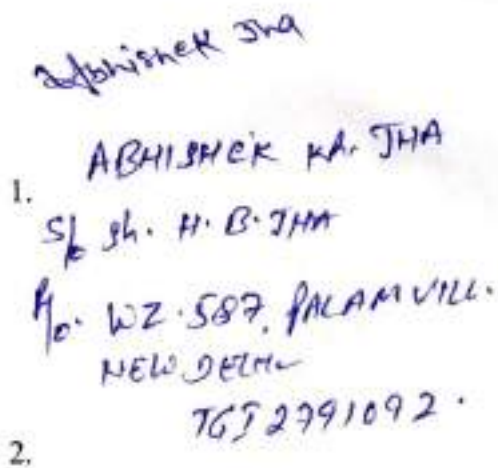 Abhishek Jha
1. ABHISHEK KR. JHA
S/o Sh. H. B. JHA
R/o. WZ-587, PALAM VILL.
NEW DELHI
TGJ2791092.
2.